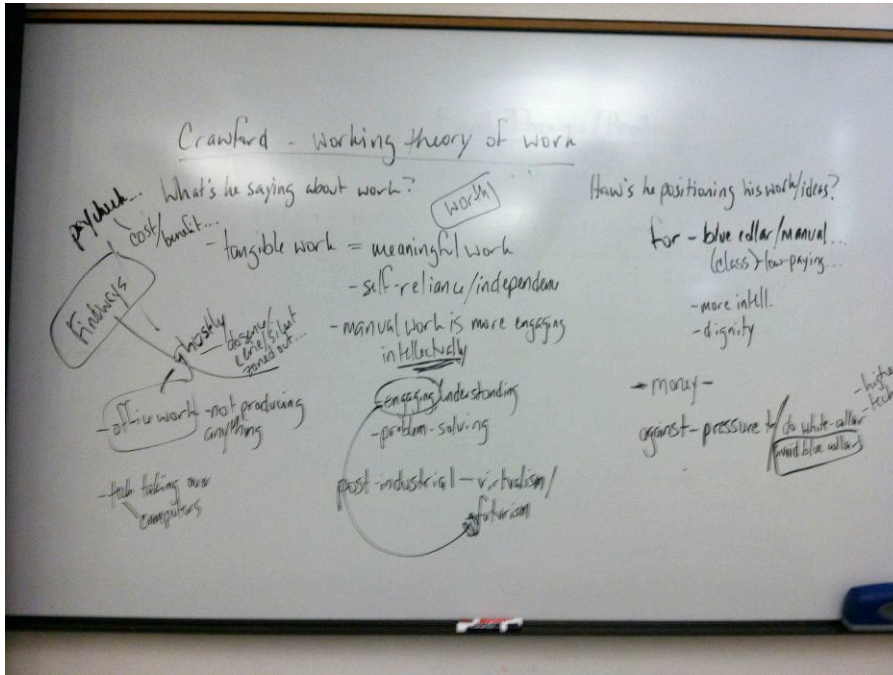 Crawford - working theory of work
What's he saying about work?
worth
paycheck...
cost/
benefit...
- tangible work = meaningful work
- self-reliance/independence
- manual work is more engaging
intellectually
- engaging/understanding
- problem-solving
post-industrial - virtualism/
futurism
Findways
ghostly
absence/
eerie/silent
zoned out...
- office work - not producing
anything
- tech taking over
computers
How's he positioning his work/ideas?
for - blue collar/manual...
(class) - low-paying...
- more intell.
- dignity
- money -
against - pressure to/do white-collar
avoid blue collar
- higher
- tech